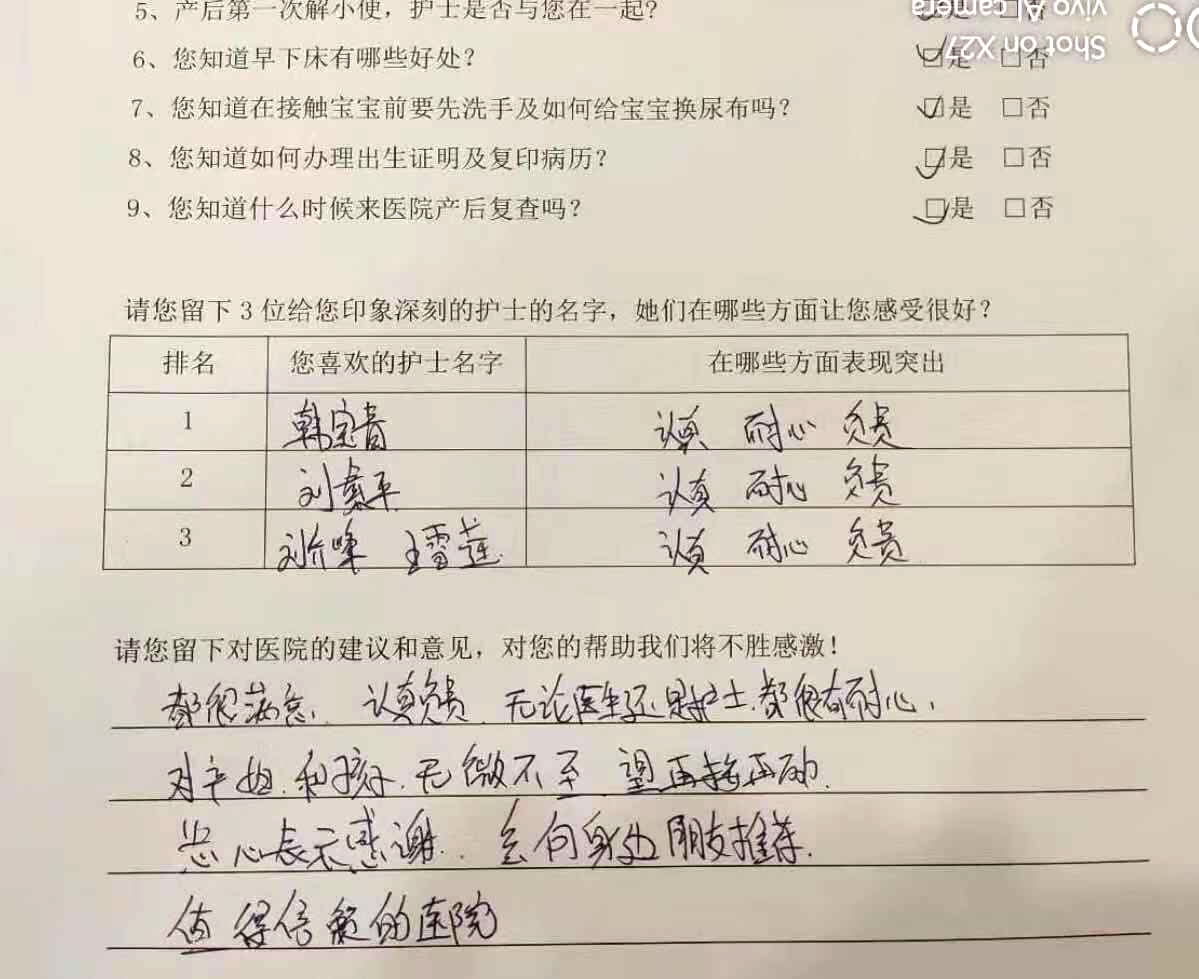 5、产后第一次解小便，护士是否与您在一起? □是 □否
6、您知道早下床有哪些好处? □是 □否
7、您知道在接触宝宝前要先洗手及如何给宝宝换尿布吗? □是 □否
8、您知道如何办理出生证明及复印病历? □是 □否
9、您知道什么时候来医院产后复查吗? □是 □否
Shot on X27
vivo AI camera
请您留下 3 位给您印象深刻的护士的名字，她们在哪些方面让您感受很好?
排名 您喜欢的护士名字 在哪些方面表现突出
1 韩宝音 认真 耐心 负责
2 刘 平 认真 耐心 负责
3 刘 王雪莲 认真 耐心 负责
请您留下对医院的建议和意见，对您的帮助我们将不胜感激!
都很满意. 认真负责. 无论医生还是护士.都很有耐心.
对产妇.和孩子.无微不至 望再接再
心表示感谢. 会向身边朋友推荐.
值得信赖的医院